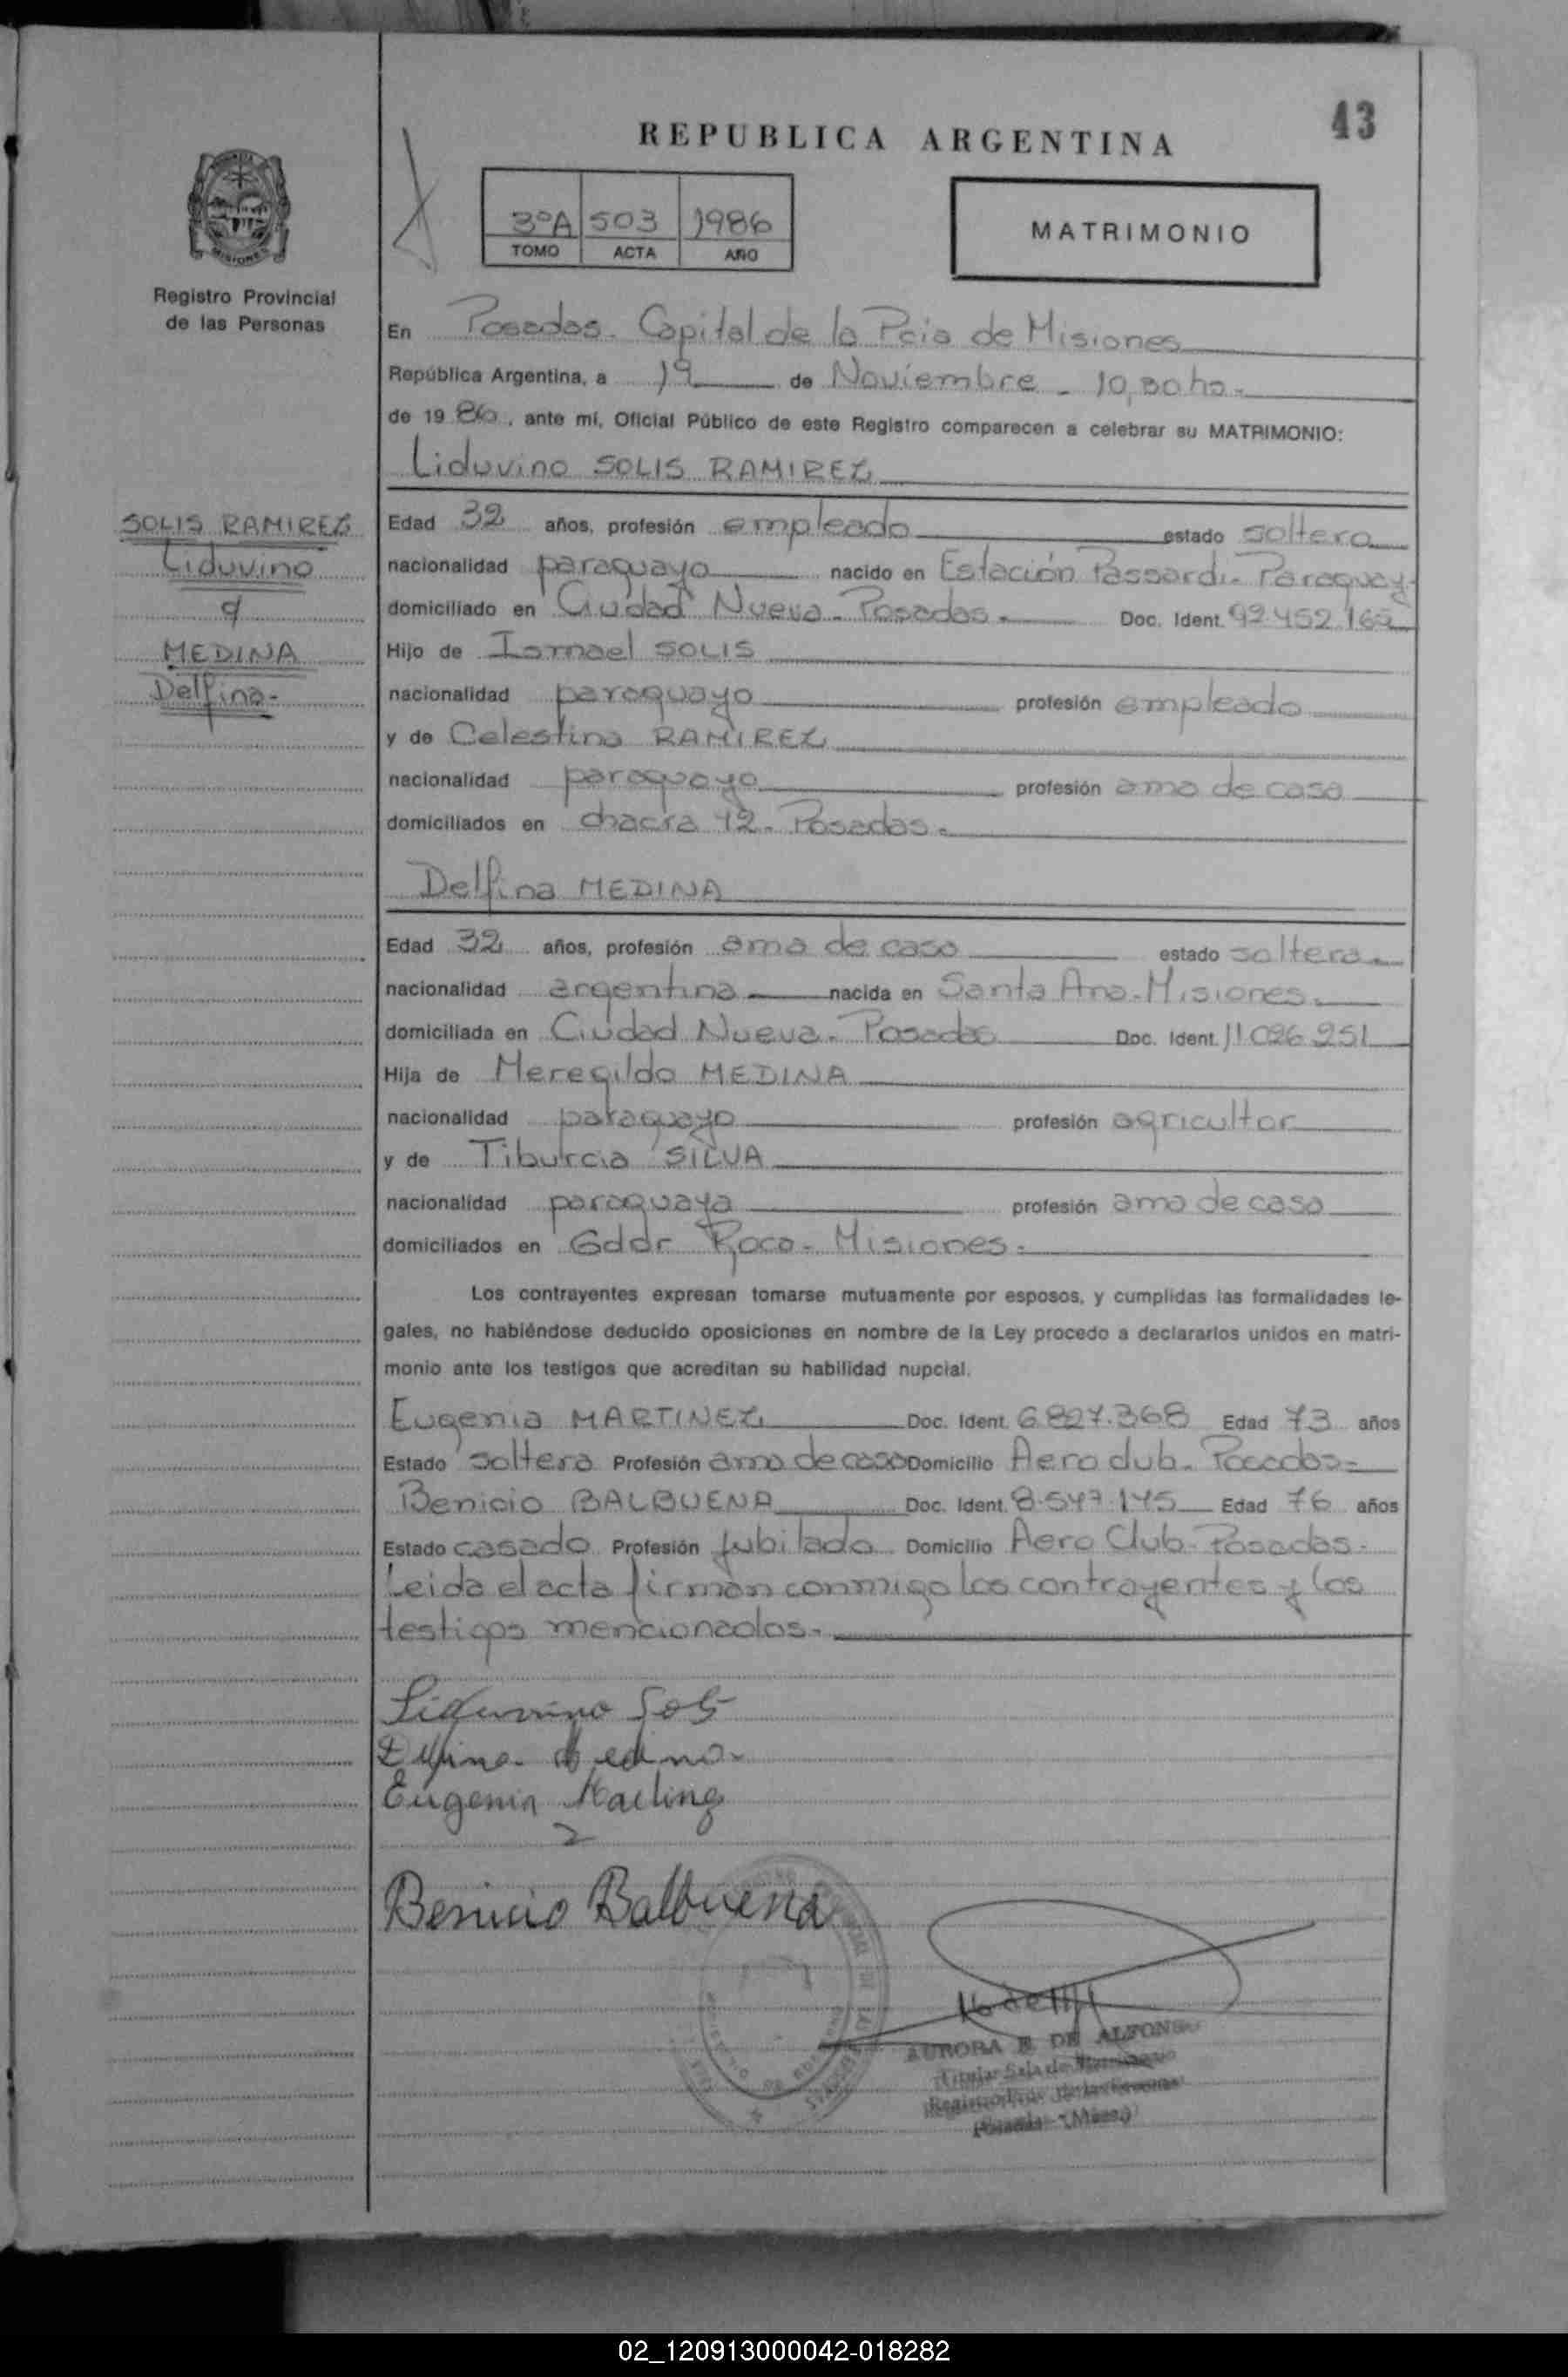 43
REPUBLICA ARGENTINA
3ºA 503 1986
TOMO ACTA AÑO
MATRIMONIO
MISIONES
Registro Provincial
de las Personas
En Posadas. Capital de la Pcia de Misiones
República Argentina, a 19 de Noviembre - 10,30 hs.
de 19 86, ante mí, Oficial Público de este Registro comparecen a celebrar su MATRIMONIO:
Liduvino SOLIS RAMIREZ
SOLIS RAMIREZ
Liduvino
y
MEDINA
Delfina-
Edad 32 años, profesión empleado estado soltero
nacionalidad paraguayo nacido en Estación Passardi- Paraguay-
domiciliado en Ciudad Nueva- Posadas- Doc. Ident.
Hijo de Ismael SOLIS
nacionalidad paraguayo profesión empleado
y de Celestina RAMIREZ
nacionalidad paraguaya profesión ama de casa
domiciliados en chacra Posadas-
Delfina MEDINA
Edad 32 años, profesión ama de casa estado soltera
nacionalidad argentina nacida en Santa Ana- Misiones-
domiciliada en Ciudad Nueva- Posadas Doc. Ident. 11 026 251
Hija de Meregildo MEDINA
nacionalidad paraguayo profesión agricultor
y de Tiburcia SILVA
nacionalidad paraguaya profesión ama de casa
domiciliados en Gddr Roca- Misiones-
Los contrayentes expresan tomarse mutuamente por esposos, y cumplidas las formalidades le-
gales, no habiéndose deducido oposiciones en nombre de la Ley procedo a declararlos unidos en matri-
monio ante los testigos que acreditan su habilidad nupcial.
Eugenia MARTINEZ Doc. Ident. 6.827.368 Edad 73 años
Estado soltera Profesión ama de casa Domicilio Aero club- Posadas-
Benicio BALBUENA Doc. Ident. 8.547.145 Edad 76 años
Estado casado Profesión jubilado Domicilio Aero Club- Posadas-
Leida el acta firman conmigo los contrayentes y los
testigos mencionados-
Liduvino Solis
Delfina Medina
Eugenia Martinez
Benicio Balbuena
AURORA E. DE ALFONSO
Titular Sala de
02_120913000042-018282